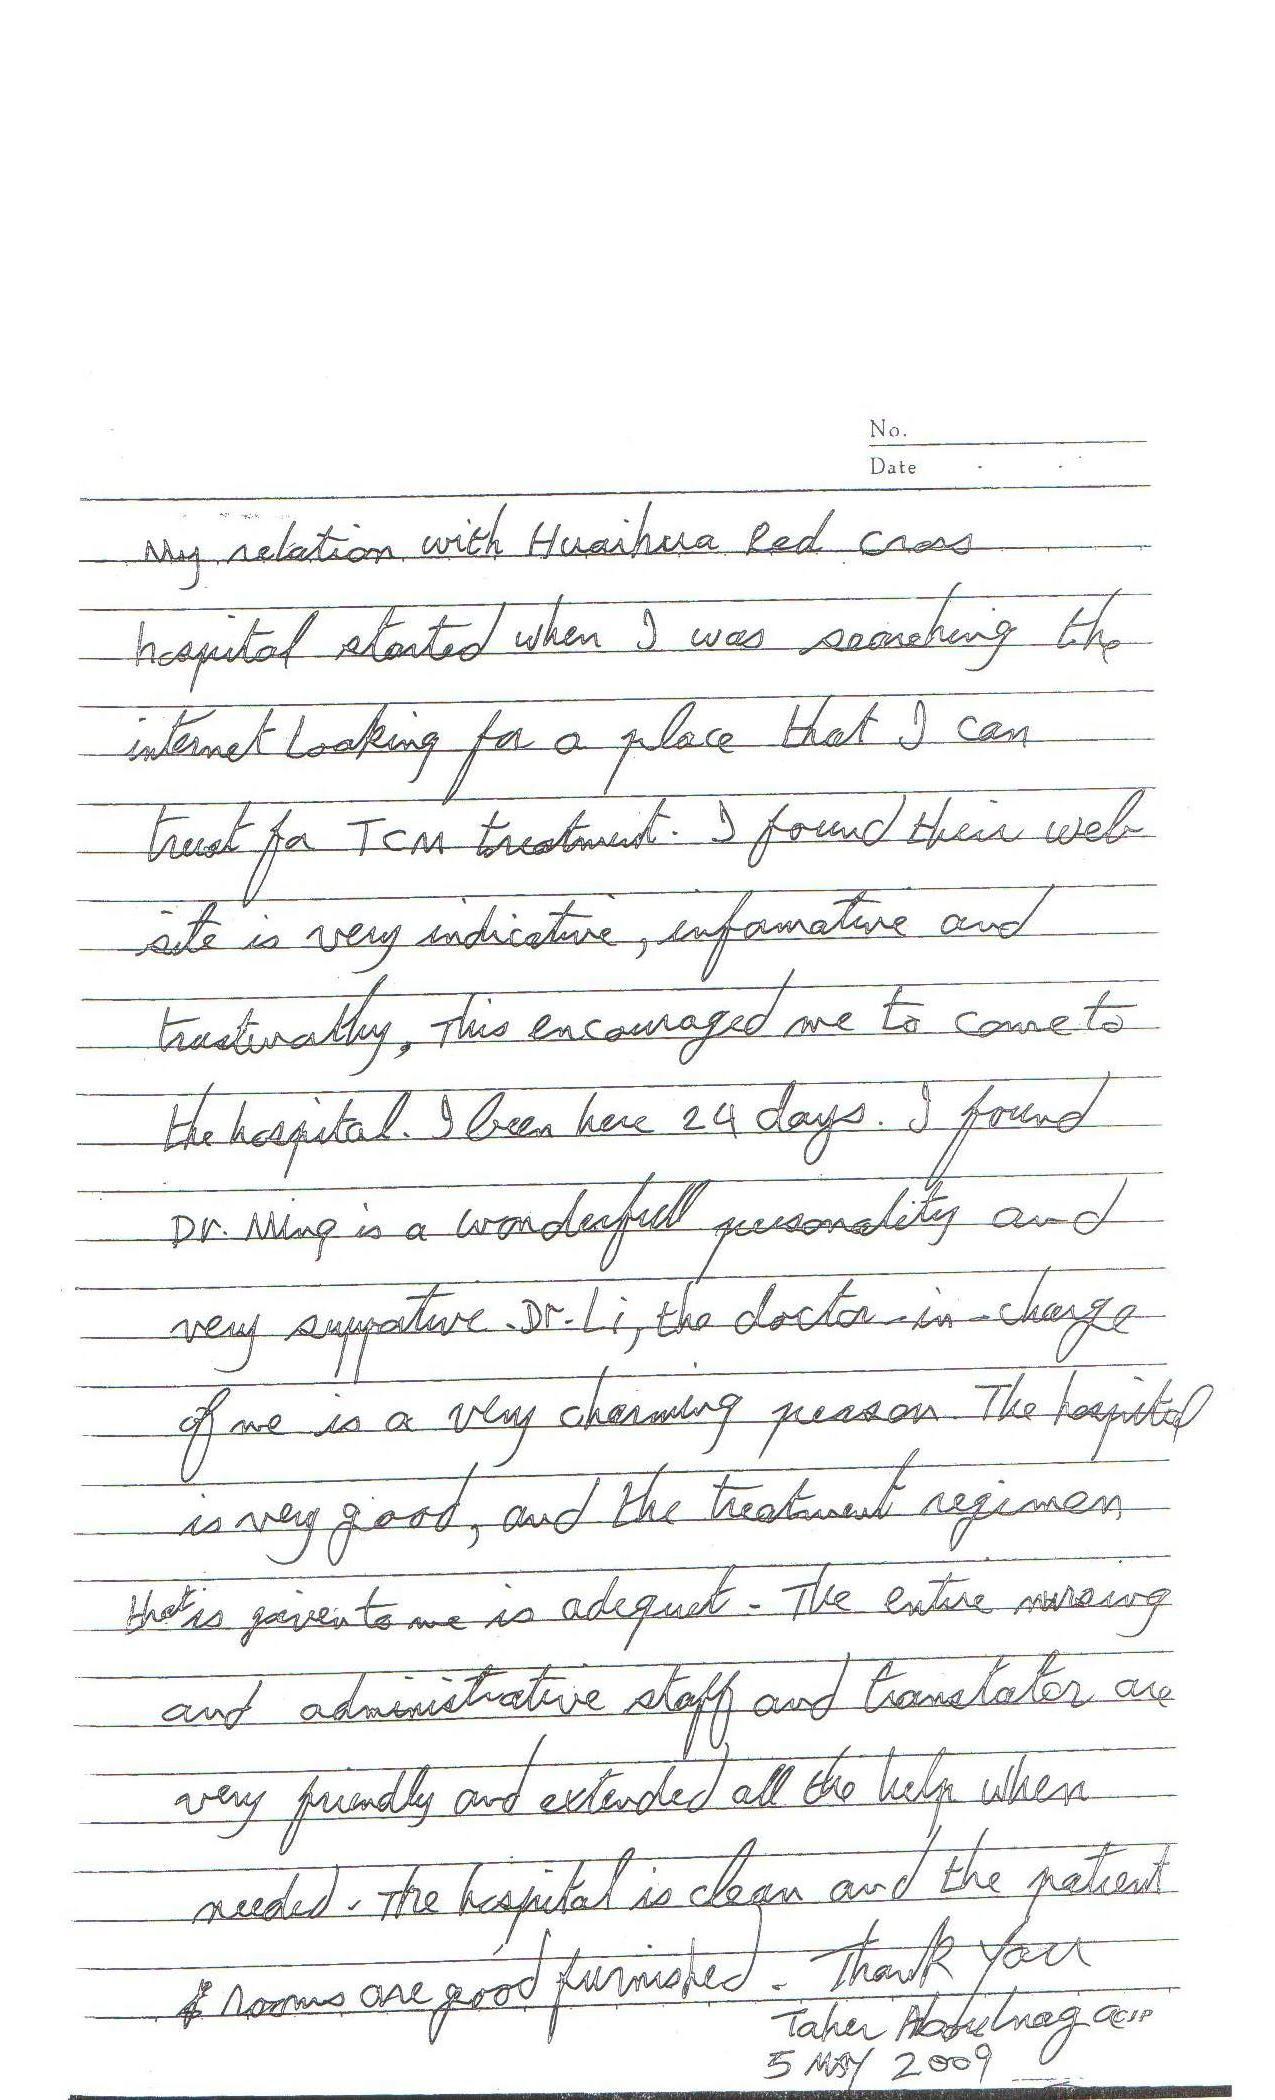 No.
Date
My relation with Huaihua Red Cross
hospital started when I was searching the
internet looking for a place that I can
trust for TCM treatment. I found their web
site is very indicative, informative and
trustworthy, This encouraged me to come to
the hospital. I been here 24 days. I found
Dr. Ming is a wonderfull personality and
very supportive. Dr. Li, the doctor-in-charge
of me is a very charming person. The hospital
is very good, and the treatment regimen
that is given to me is adequet. The entire nursing
and administrative staff and translator are
very friendly and extended all the help when
needed. The hospital is clean and the patient
rooms are good furnished. Thank You
Taher Abdelnag
5 MAY 2009